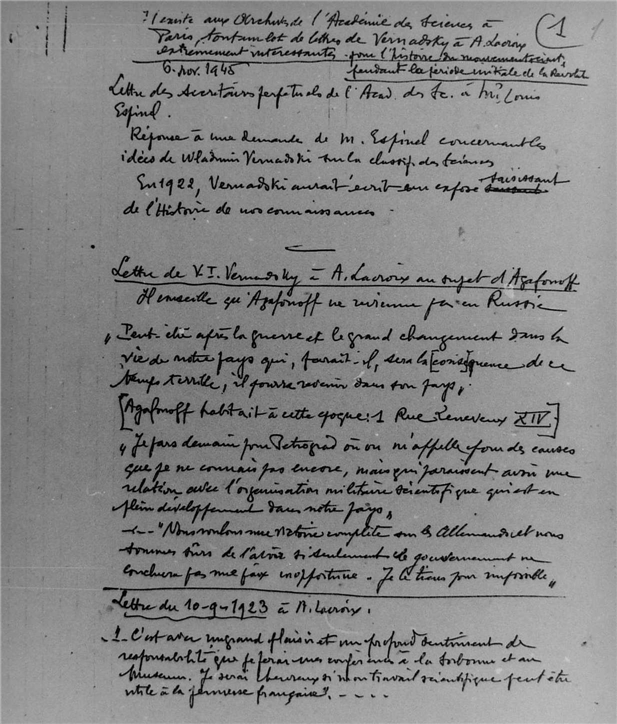 Il existe aux Archives de l'Académie des Sciences à
Paris, tout un lot de lettres de Vernadsky à A. Lacroix
extrêmement intéressantes pour l'histoire du mouvement scient.
pendant la période initiale de la
6. nov. 1945
Lettre des secrétaires perpétuels de l'Acad. des Sc. à Mr. Louis
Espinel.
Réponse à une demande de M. Espinel concernant les
idées de Wladimir Vernadski sur la classif. des Sciences
En 1922, Vernadski aurait écrit un exposé saisissant
de l'Histoire de nos connaissances.
Lettre de V.I. Vernadsky à A. Lacroix au sujet d'Agafonoff
Il conseille qu'Agafonoff ne revienne pas en Russie
"Peut-être après la guerre et le grand changement dans la
vie de notre pays qui, paraît-il, sera la [conséquence de ce
temps terrible, il pourra revenir dans son pays"
[Agafonoff habitait à cette époque: 1 Rue Leneveux XIV]
"Je pars demain pour Petrograd où on m'appelle pour des causes
que je ne connais pas encore, mais qui paraissent avoir une
relation avec l'organisation militaire scientifique qui est en
plein développement dans notre pays"
"Nous voulons une victoire complète sur les Allemands et nous
sommes sûrs de l'avoir si seulement le gouvernement ne
conclura pas une paix inopportune. Je le tiens pour impossible"
Lettre du 10-9-1923 à A. Lacroix.
"C'est avec un grand plaisir et un profond sentiment de
responsabilité que je ferai mes conférences à la Sorbonne et au
Museum. Je serai heureux si mon travail scientifique peut être
utile à la jeunesse française". - - - -
1